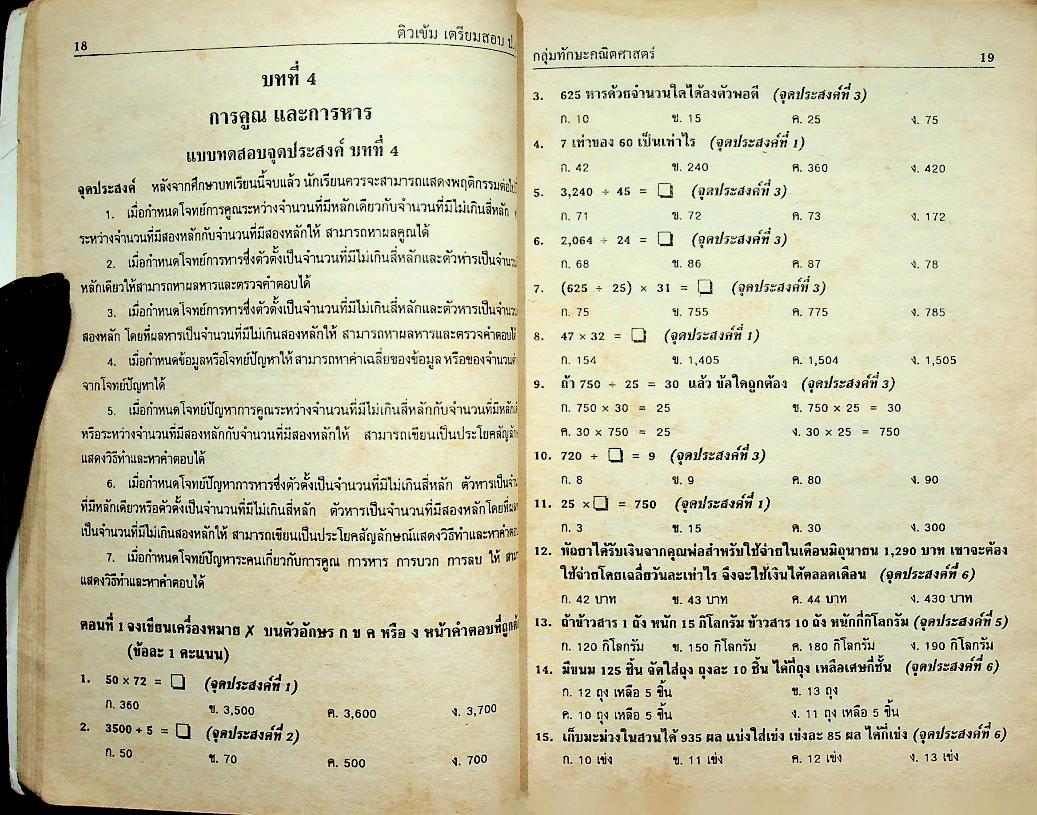 18
ติวเข้ม เตรียมสอบ ป.
บทที่ 4
การคูณ และการหาร
แบบทดสอบจุดประสงค์ บทที่ 4
จุดประสงค์ หลังจากศึกษาบทเรียนนี้จบแล้ว นักเรียนควรจะสามารถแสดงพฤติกรรมต่อไป
1. เมื่อกำหนดโจทย์การคูณระหว่างจำนวนที่มีหลักเดียวกับจำนวนที่มีไม่เกินสี่หลัก
ระหว่างจำนวนที่มีสองหลักกับจำนวนที่มีสองหลักให้ สามารถหาผลคูณได้
2. เมื่อกำหนดโจทย์การหารซึ่งตัวตั้งเป็นจำนวนที่มีไม่เกินสี่หลักและตัวหารเป็นจำนว
หลักเดียวให้สามารถหาผลหารและตรวจคำตอบได้
3. เมื่อกำหนดโจทย์การหารซึ่งตัวตั้งเป็นจำนวนที่มีไม่เกินสี่หลักและตัวหารเป็นจำนว
สองหลัก โดยที่ผลหารเป็นจำนวนที่มีไม่เกินสองหลักให้ สามารถหาผลหารและตรวจคำตอบได้
4. เมื่อกำหนดข้อมูลหรือโจทย์ปัญหาให้สามารถหาค่าเฉลี่ยของข้อมูล หรือของจำนวน
จากโจทย์ปัญหาได้
5. เมื่อกำหนดโจทย์ปัญหาการคูณระหว่างจำนวนที่มีไม่เกินสี่หลักกับจำนวนที่มีหลัก
หรือระหว่างจำนวนที่มีสองหลักกับจำนวนที่มีสองหลักให้ สามารถเขียนเป็นประโยคสัญลัก
แสดงวิธีทำและหาคำตอบได้
6. เมื่อกำหนดโจทย์ปัญหาการหารซึ่งตัวตั้งเป็นจำนวนที่มีไม่เกินสี่หลัก ตัวหารเป็นจำ
ที่มีหลักเดียวหรือตัวตั้งเป็นจำนวนที่มีไม่เกินสี่หลัก ตัวหารเป็นจำนวนที่มีสองหลักโดยที่ผล
เป็นจำนวนที่มีไม่เกินสองหลักให้ สามารถเขียนเป็นประโยคสัญลักษณ์แสดงวิธีทำและหาคำตอบ
7. เมื่อกำหนดโจทย์ปัญหาระคนเกี่ยวกับการคูณ การหาร การบวก การลบ ให้ สามา
แสดงวิธีทำและหาคำตอบได้
ตอนที่ 1 จงเขียนเครื่องหมาย ✗ บนตัวอักษร ก ข ค หรือ ง หน้าคำตอบที่ถูกต้
(ข้อละ 1 คะแนน)
1. 50 × 72 = ☐ (จุดประสงค์ที่ 1)
ก. 360 ข. 3,500 ค. 3,600 ง. 3,700
2. 3500 ÷ 5 = ☐ (จุดประสงค์ที่ 2)
ก. 50 ข. 70 ค. 500 ง. 700
กลุ่มทักษะคณิตศาสตร์ 19
3. 625 หารด้วยจำนวนใดได้ลงตัวพอดี (จุดประสงค์ที่ 3)
ก. 10 ข. 15 ค. 25 ง. 75
4. 7 เท่าของ 60 เป็นเท่าไร (จุดประสงค์ที่ 1)
ก. 42 ข. 240 ค. 360 ง. 420
5. 3,240 ÷ 45 = ☐ (จุดประสงค์ที่ 3)
ก. 71 ข. 72 ค. 73 ง. 172
6. 2,064 ÷ 24 = ☐ (จุดประสงค์ที่ 3)
ก. 68 ข. 86 ค. 87 ง. 78
7. (625 ÷ 25) × 31 = ☐ (จุดประสงค์ที่ 3)
ก. 75 ข. 755 ค. 775 ง. 785
8. 47 × 32 = ☐ (จุดประสงค์ที่ 1)
ก. 154 ข. 1,405 ค. 1,504 ง. 1,505
9. ถ้า 750 ÷ 25 = 30 แล้ว ข้อใดถูกต้อง (จุดประสงค์ที่ 3)
ก. 750 × 30 = 25 ข. 750 × 25 = 30
ค. 30 × 750 = 25 ง. 30 × 25 = 750
10. 720 ÷ ☐ = 9 (จุดประสงค์ที่ 3)
ก. 8 ข. 9 ค. 80 ง. 90
11. 25 × ☐ = 750 (จุดประสงค์ที่ 1)
ก. 3 ข. 15 ค. 30 ง. 300
12. พัณยาได้รับเงินจากคุณพ่อสำหรับใช้จ่ายในเดือนมิถุนายน 1,290 บาท เขาจะต้อง
ใช้จ่ายโดยเฉลี่ยวันละเท่าไร จึงจะใช้เงินได้ตลอดเดือน (จุดประสงค์ที่ 6)
ก. 42 บาท ข. 43 บาท ค. 44 บาท ง. 430 บาท
13. ถ้าข้าวสาร 1 ถัง หนัก 15 กิโลกรัม ข้าวสาร 10 ถัง หนักกี่กิโลกรัม (จุดประสงค์ที่ 5)
ก. 120 กิโลกรัม ข. 150 กิโลกรัม ค. 180 กิโลกรัม ง. 190 กิโลกรัม
14. มีขนม 125 ชิ้น จัดใส่ถุง ถุงละ 10 ชิ้น ได้กี่ถุง เหลือเศษกี่ชิ้น (จุดประสงค์ที่ 6)
ก. 12 ถุง เหลือ 5 ชิ้น ข. 13 ถุง
ค. 10 ถุง เหลือ 5 ชิ้น ง. 11 ถุง เหลือ 5 ชิ้น
15. เก็บมะม่วงในสวนได้ 935 ผล แบ่งใส่เข่ง เข่งละ 85 ผล ได้กี่เข่ง (จุดประสงค์ที่ 6)
ก. 10 เข่ง ข. 11 เข่ง ค. 12 เข่ง ง. 13 เข่ง